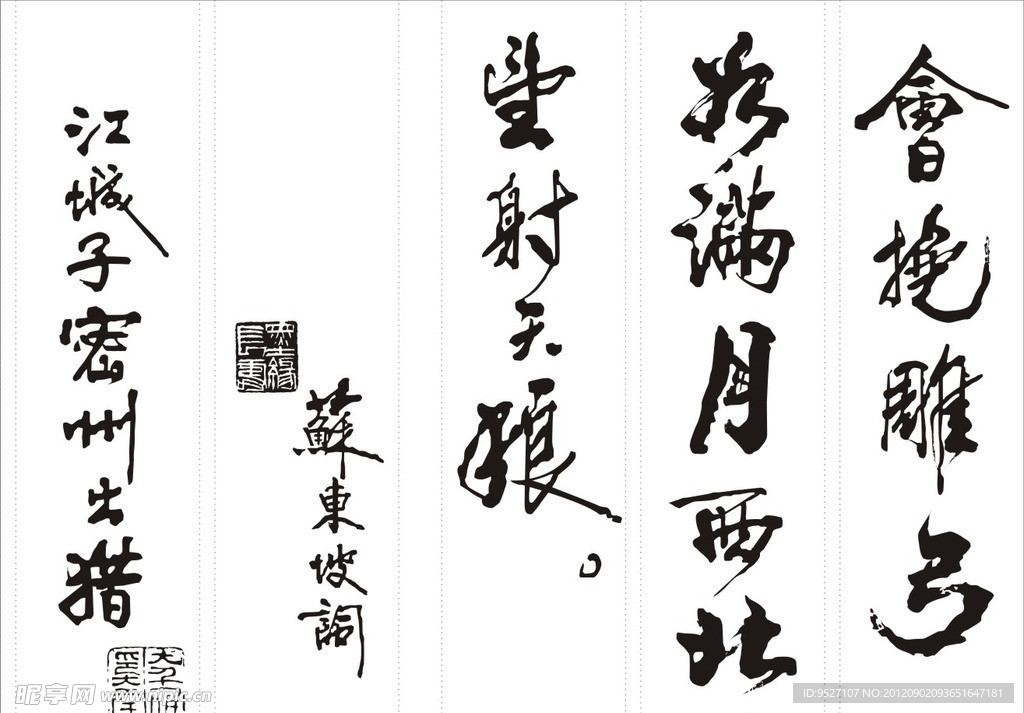 會挽雕弓
如滿月西北
望射天狼。
蘇東坡詞
江城子密州出猎
昵享网 www.nipic.cn
ID:9527107 NO:20120902093651647181